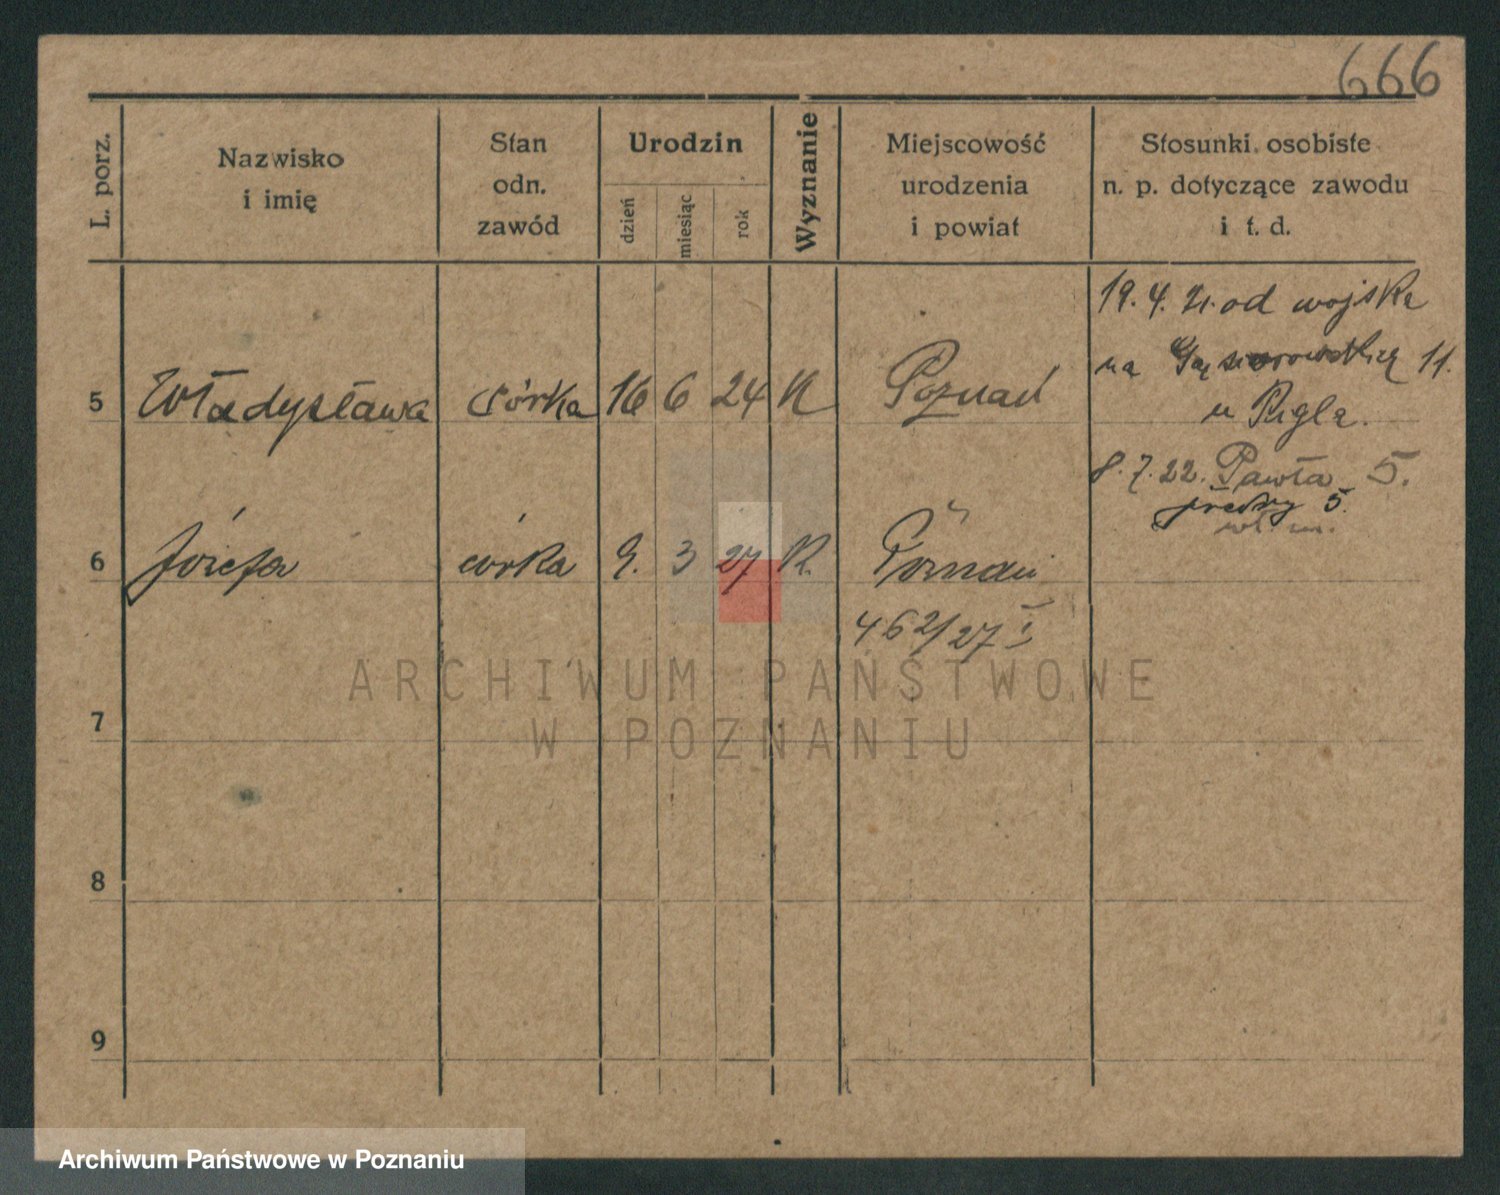 666
L. porz.
Nazwisko
i imię
Stan
odn.
zawód
Urodzin
dzień
miesiąc
rok
Wyznanie
Miejscowość
urodzenia
i powiat
Stosunki osobiste
n. p. dotyczące zawodu
i t. d.
19. 4. 21. od wojska
na 11.
u Rugla.
8. 7. 22. Pawła 5.
5.
5 Władysława córka 16 6 24 K Poznań
6 Józefa córka 9. 3 27 K. Poznań
462/27 I
7
8
9
ARCHIWUM PAŃSTWOWE
W POZNANIU
Archiwum Państwowe w Poznaniu